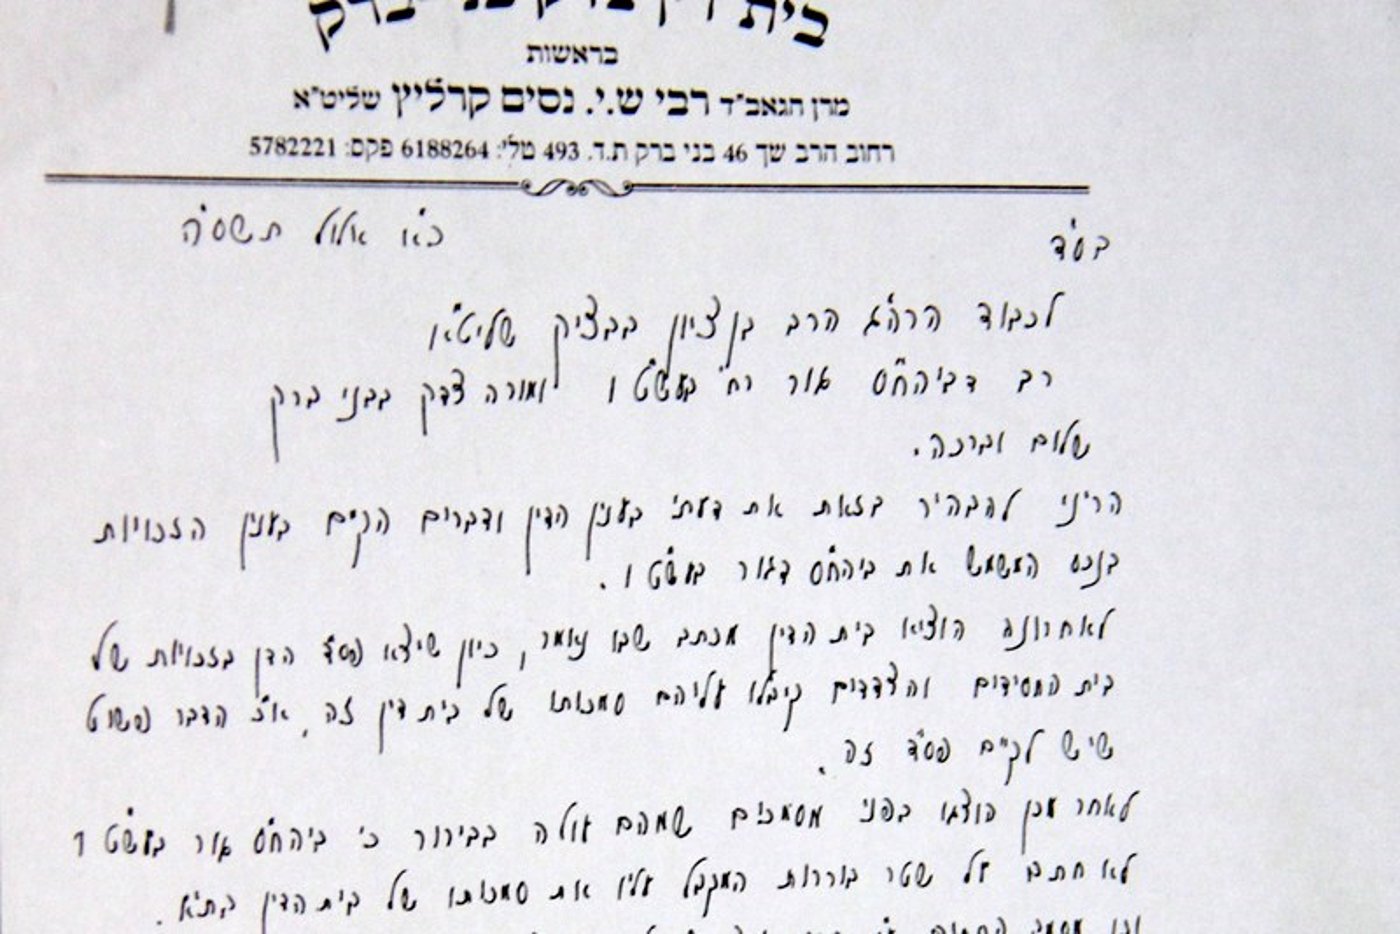 בראשות
מרן הגאב"ד רבי ש.י. נסים קרליץ שליט"א
רחוב הרב שך 46 בני ברק ת.ד. 493 טל': 6188264 פקס: 5782221
בס"ד
כ"א אלול תשס"ה
לכבוד הרה"ג הרב בן ציון בבציק שליט"א
רב דביהח"ס גור רח' בעש"ט 1 ומורה צדק בבני ברק
שלום וברכה.
הריני להבהיר בזאת את דעתי בענין הדין ודברים הקיים בענין הזכויות
בנכס המשמש את ביהח"ס דגור בעש"ט 1.
לאחרונה הוציא בית הדין מכתב שבו נאמר, כיון שיצא פס"ד הדן בזכויות של
בית החסידים והצדדים קיבלו עליהם סמכותו של בית דין זה, א"כ הדבר פשוט
שיש לקיים פס"ד זה.
לאחר מכן הוצגו בפני מסמכים שמהם עולה בבירור כי ביהח"ס גור בעש"ט 1
לא חתם על שטר בוררות המקבל עליו את סמכותו של בית הדין בת"א.